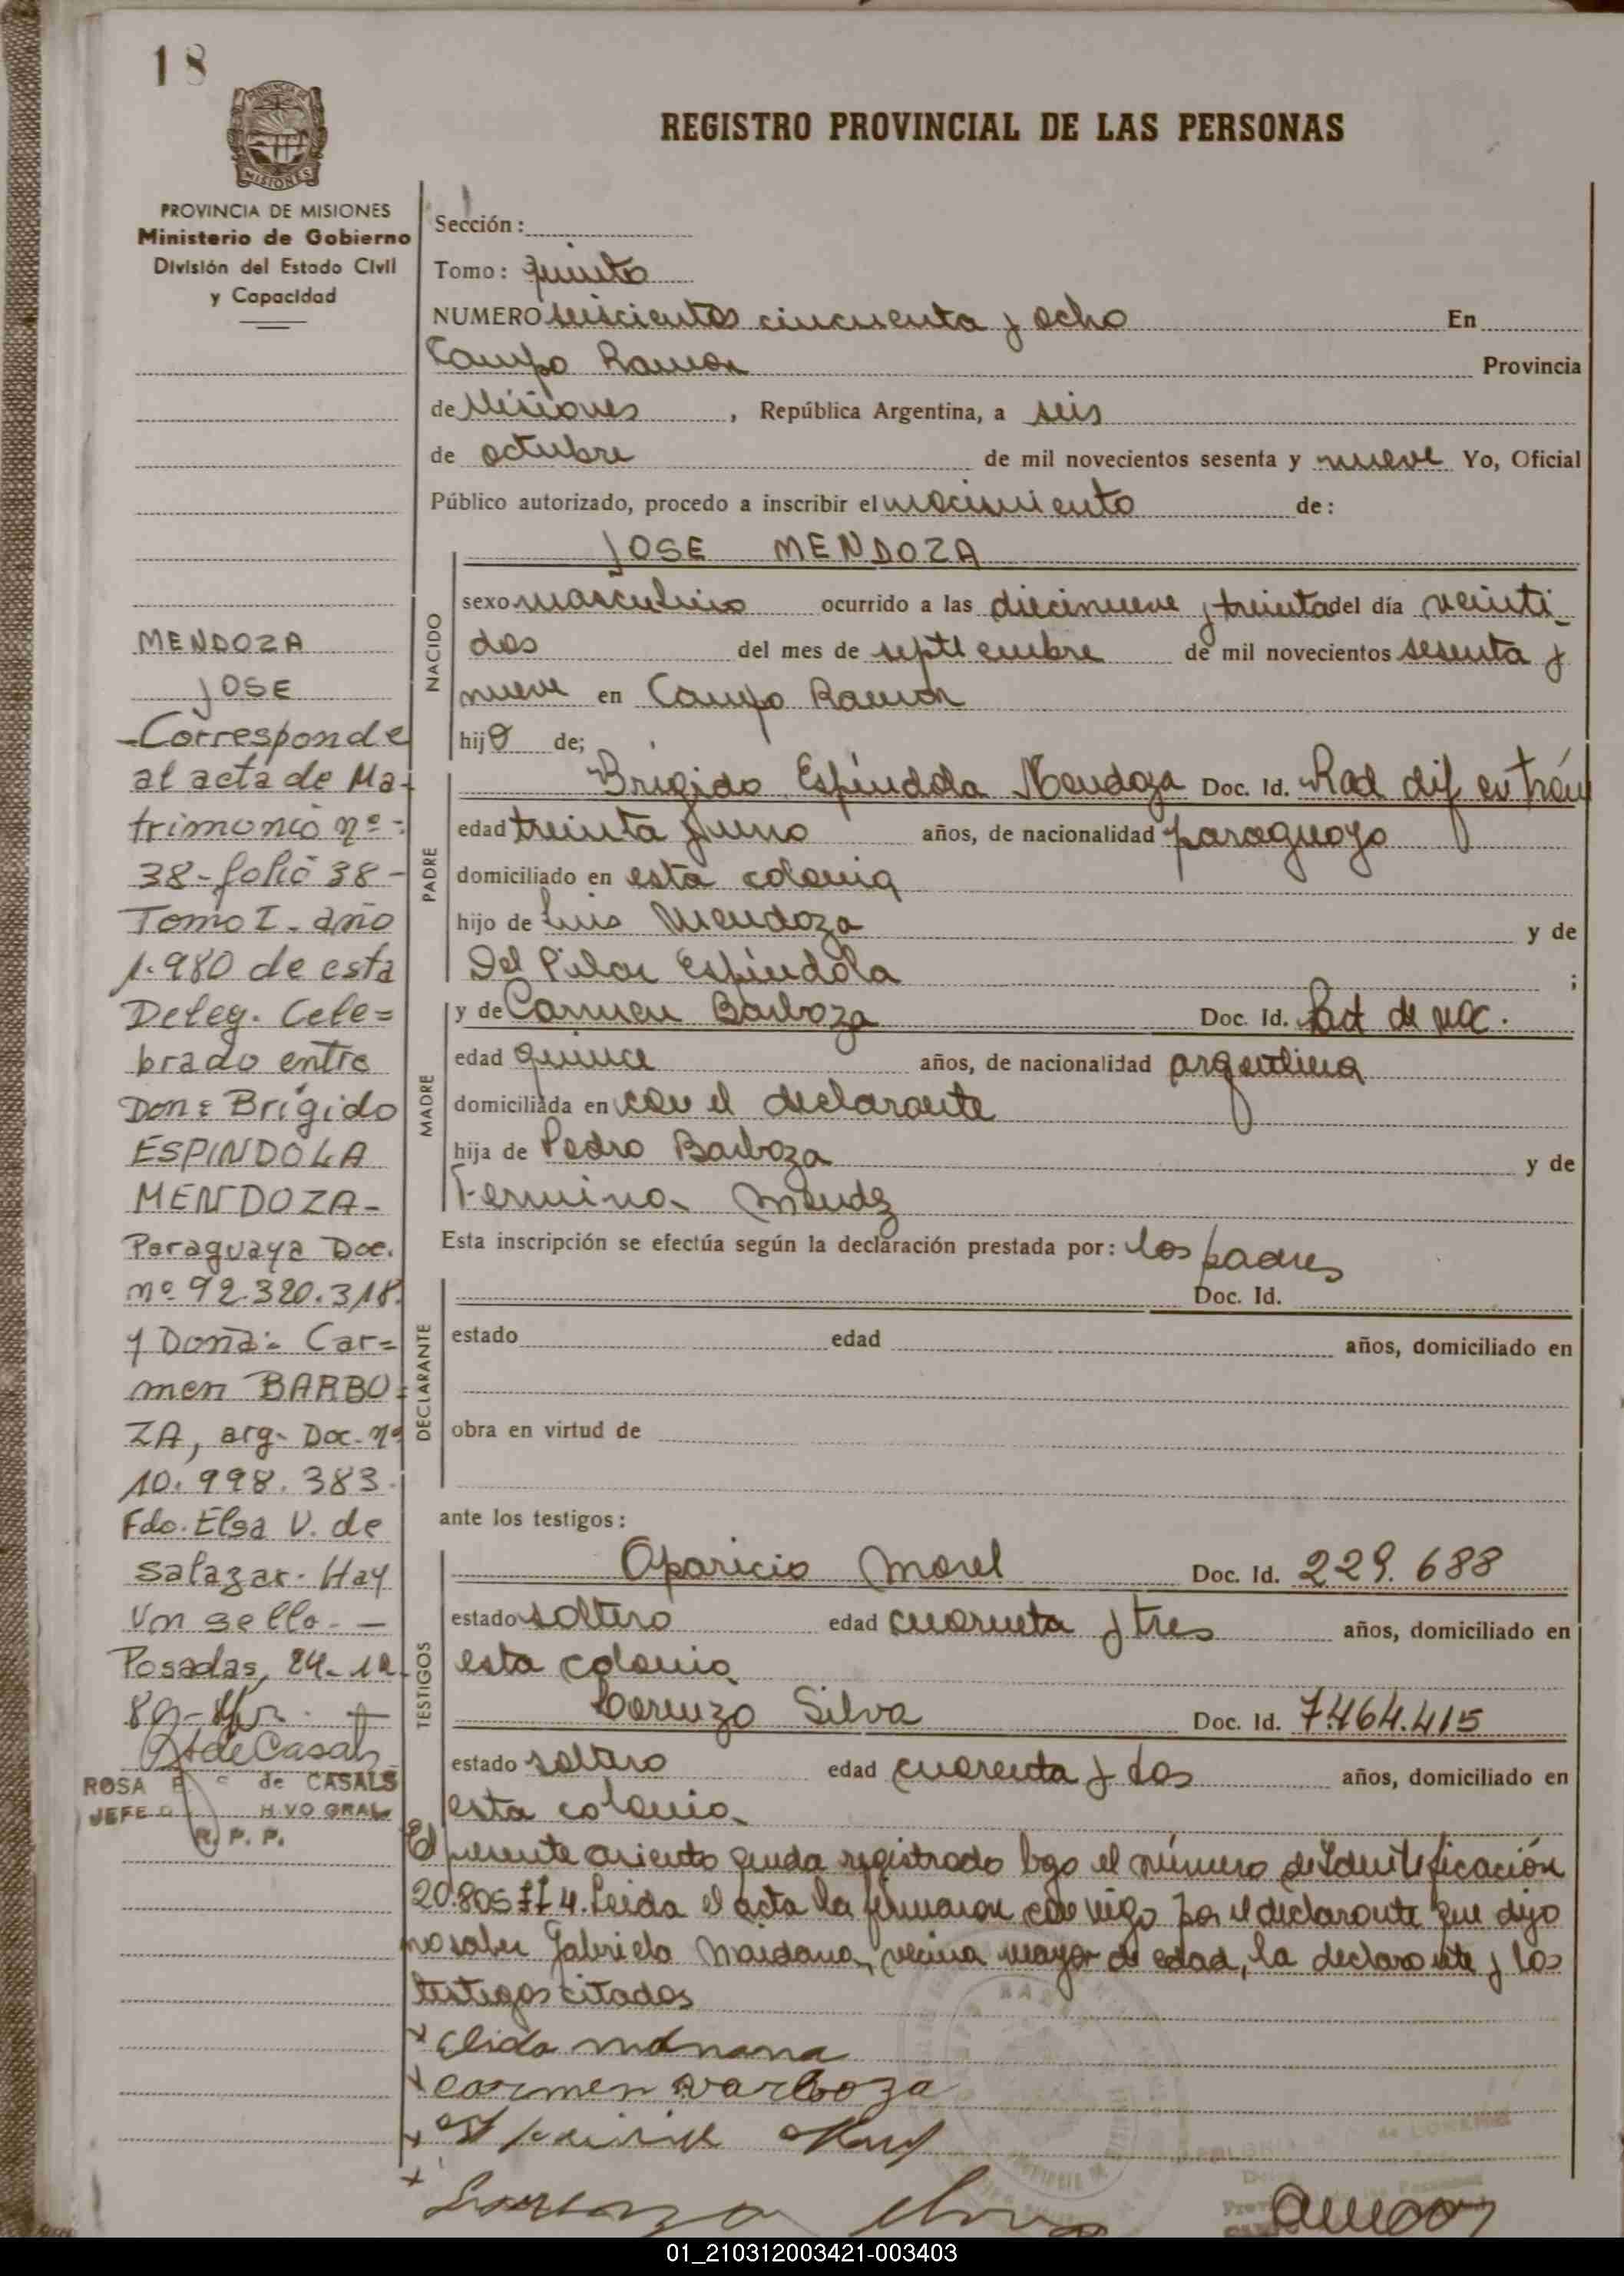 18
PROVINCIA DE MISIONES
Ministerio de Gobierno
División del Estado Civil
y Capacidad
MENDOZA
JOSE
-Corresponde
al acta de Ma-
trimonio nº-
38-folio 38-
Tomo I. año
1.980 de esta
Deleg. Cele=
brado entre
Don: Brígido
ESPINDOLA
MENDOZA-
Paraguaya Doc.
nº 92.320.318.
y Doña: Car=
men BARBO=
ZA, arg- Doc. nº
10.998.383.
Fdo. Elsa V. de
Salazar. Hay
un sello. -
Posadas, 24-12-
ROSA de CASALS
JEFE
R. P. P.
REGISTRO PROVINCIAL DE LAS PERSONAS
Sección:
Tomo: quinto
NUMERO seiscientos cincuenta y ocho En
Campo Ramon Provincia
de Misiones, República Argentina, a seis
de octubre de mil novecientos sesenta y nueve Yo, Oficial
Público autorizado, procedo a inscribir el nacimiento de:
JOSE MENDOZA
NACIDO
sexo masculino ocurrido a las diecinueve y treinta del día veinti
dos del mes de septiembre de mil novecientos sesenta y
nueve en Campo Ramon
hijo de;
PADRE
Brigido Espindola Mendoza Doc. Id. Rad dif
edad treinta y uno años, de nacionalidad paraguayo
domiciliado en esta colonia
hijo de Luis Mendoza y de
Del Pilar Espindola ;
MADRE
y de Carmen Barboza Doc. Id. Part de nac.
edad quince años, de nacionalidad argentina
domiciliada en con el declarante
hija de Pedro Barboza y de
Fermina Mendez
Esta inscripción se efectúa según la declaración prestada por: los padres
DECLARANTE
Doc. Id.
estado edad años, domiciliado en
obra en virtud de
ante los testigos:
TESTIGOS
Aparicio Morel Doc. Id. 229.688
estado soltero edad cuarenta y tres años, domiciliado en
esta colonia
Lorenzo Silva Doc. Id. 7.464.415
estado soltero edad cuarenta y dos años, domiciliado en
esta colonia
El presente asiento queda registrado bajo el número de Identificación
Leida el acta la firmaron con migo por el declarante que dijo
no saber Gabriela Maidana, vecina mayor de edad, la declarante y los
testigos citados
carmen Varboza
01_210312003421-003403